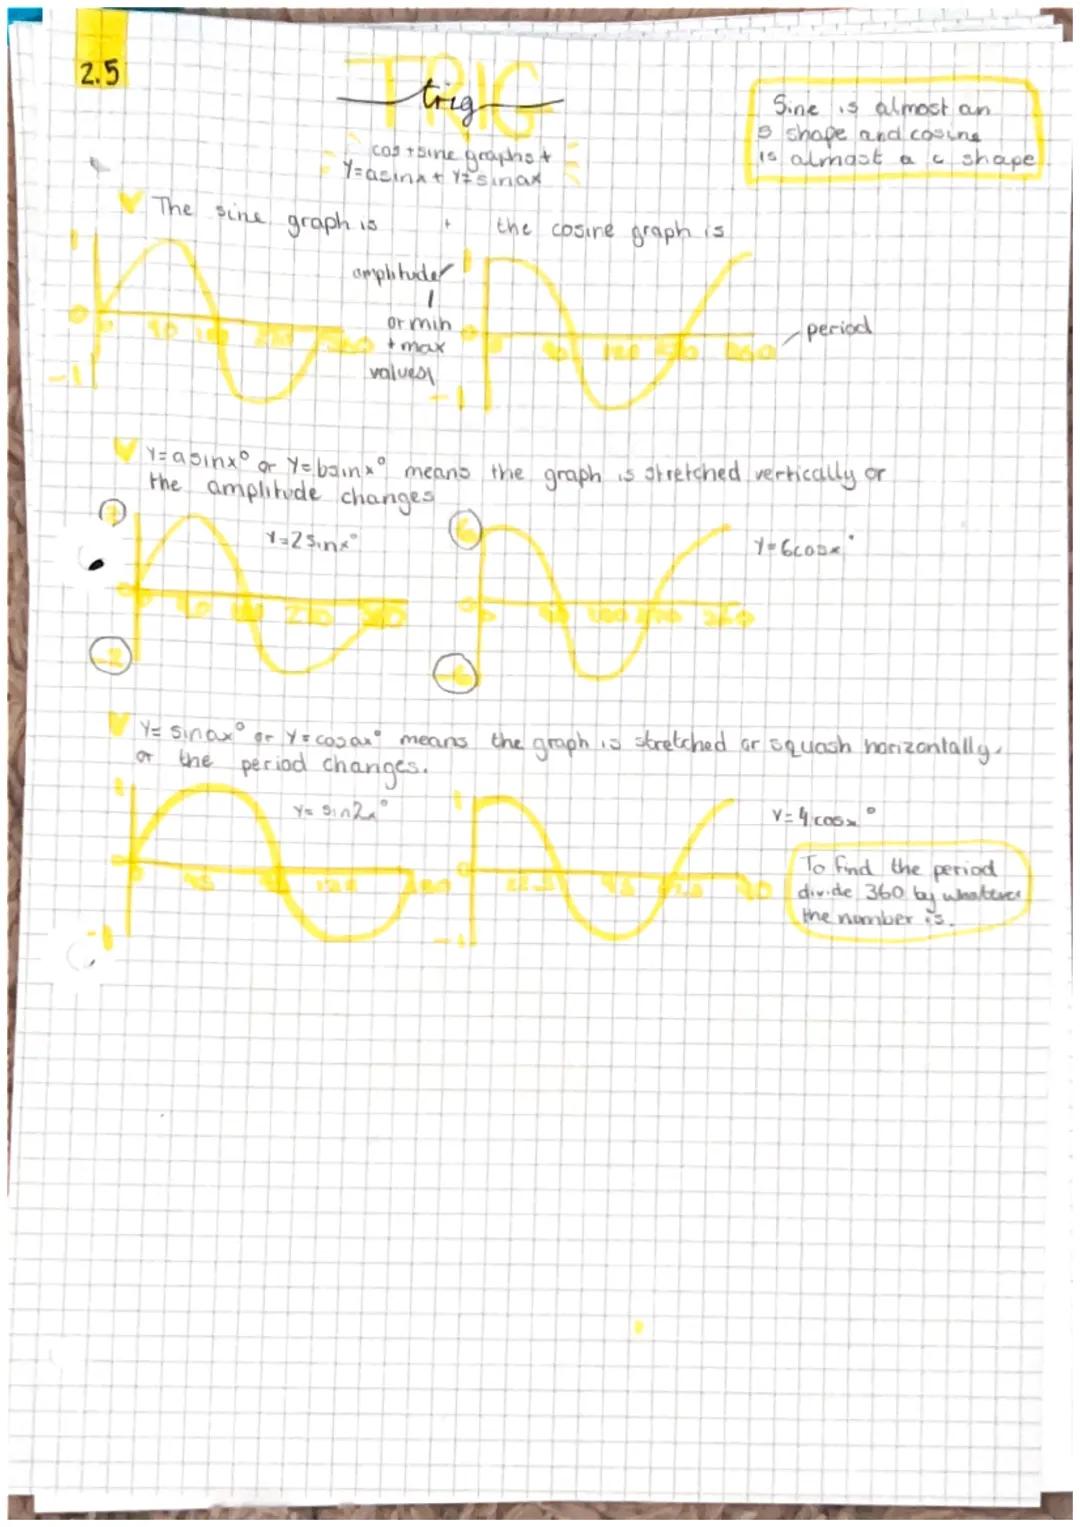 2.5
TRIG
trig
cos + sine graphs +
Y=asinx + Y=sinax
Sine is almost an
s shape and cosine
is almost a c shape
The sine graph is + the cosine graph is
1
0
90
-1
amplitude
or min
+ max
values
1
-1
360
period
Y=asinx° or Y=bsinx° means the graph is stretched vertically or
the amplitude changes
Y=2sinx°
-2
90
270
6
-6
Y=6cosx°
180
360
Y=sinax° or Y=cosax° means the graph is stretched or squash horizontally.
or the period changes.
1
Y=sin2x°
45
-1
180
1
-1
22.5
90
Y=4cosx°
To find the period
divide 360 by whatever
the number is.